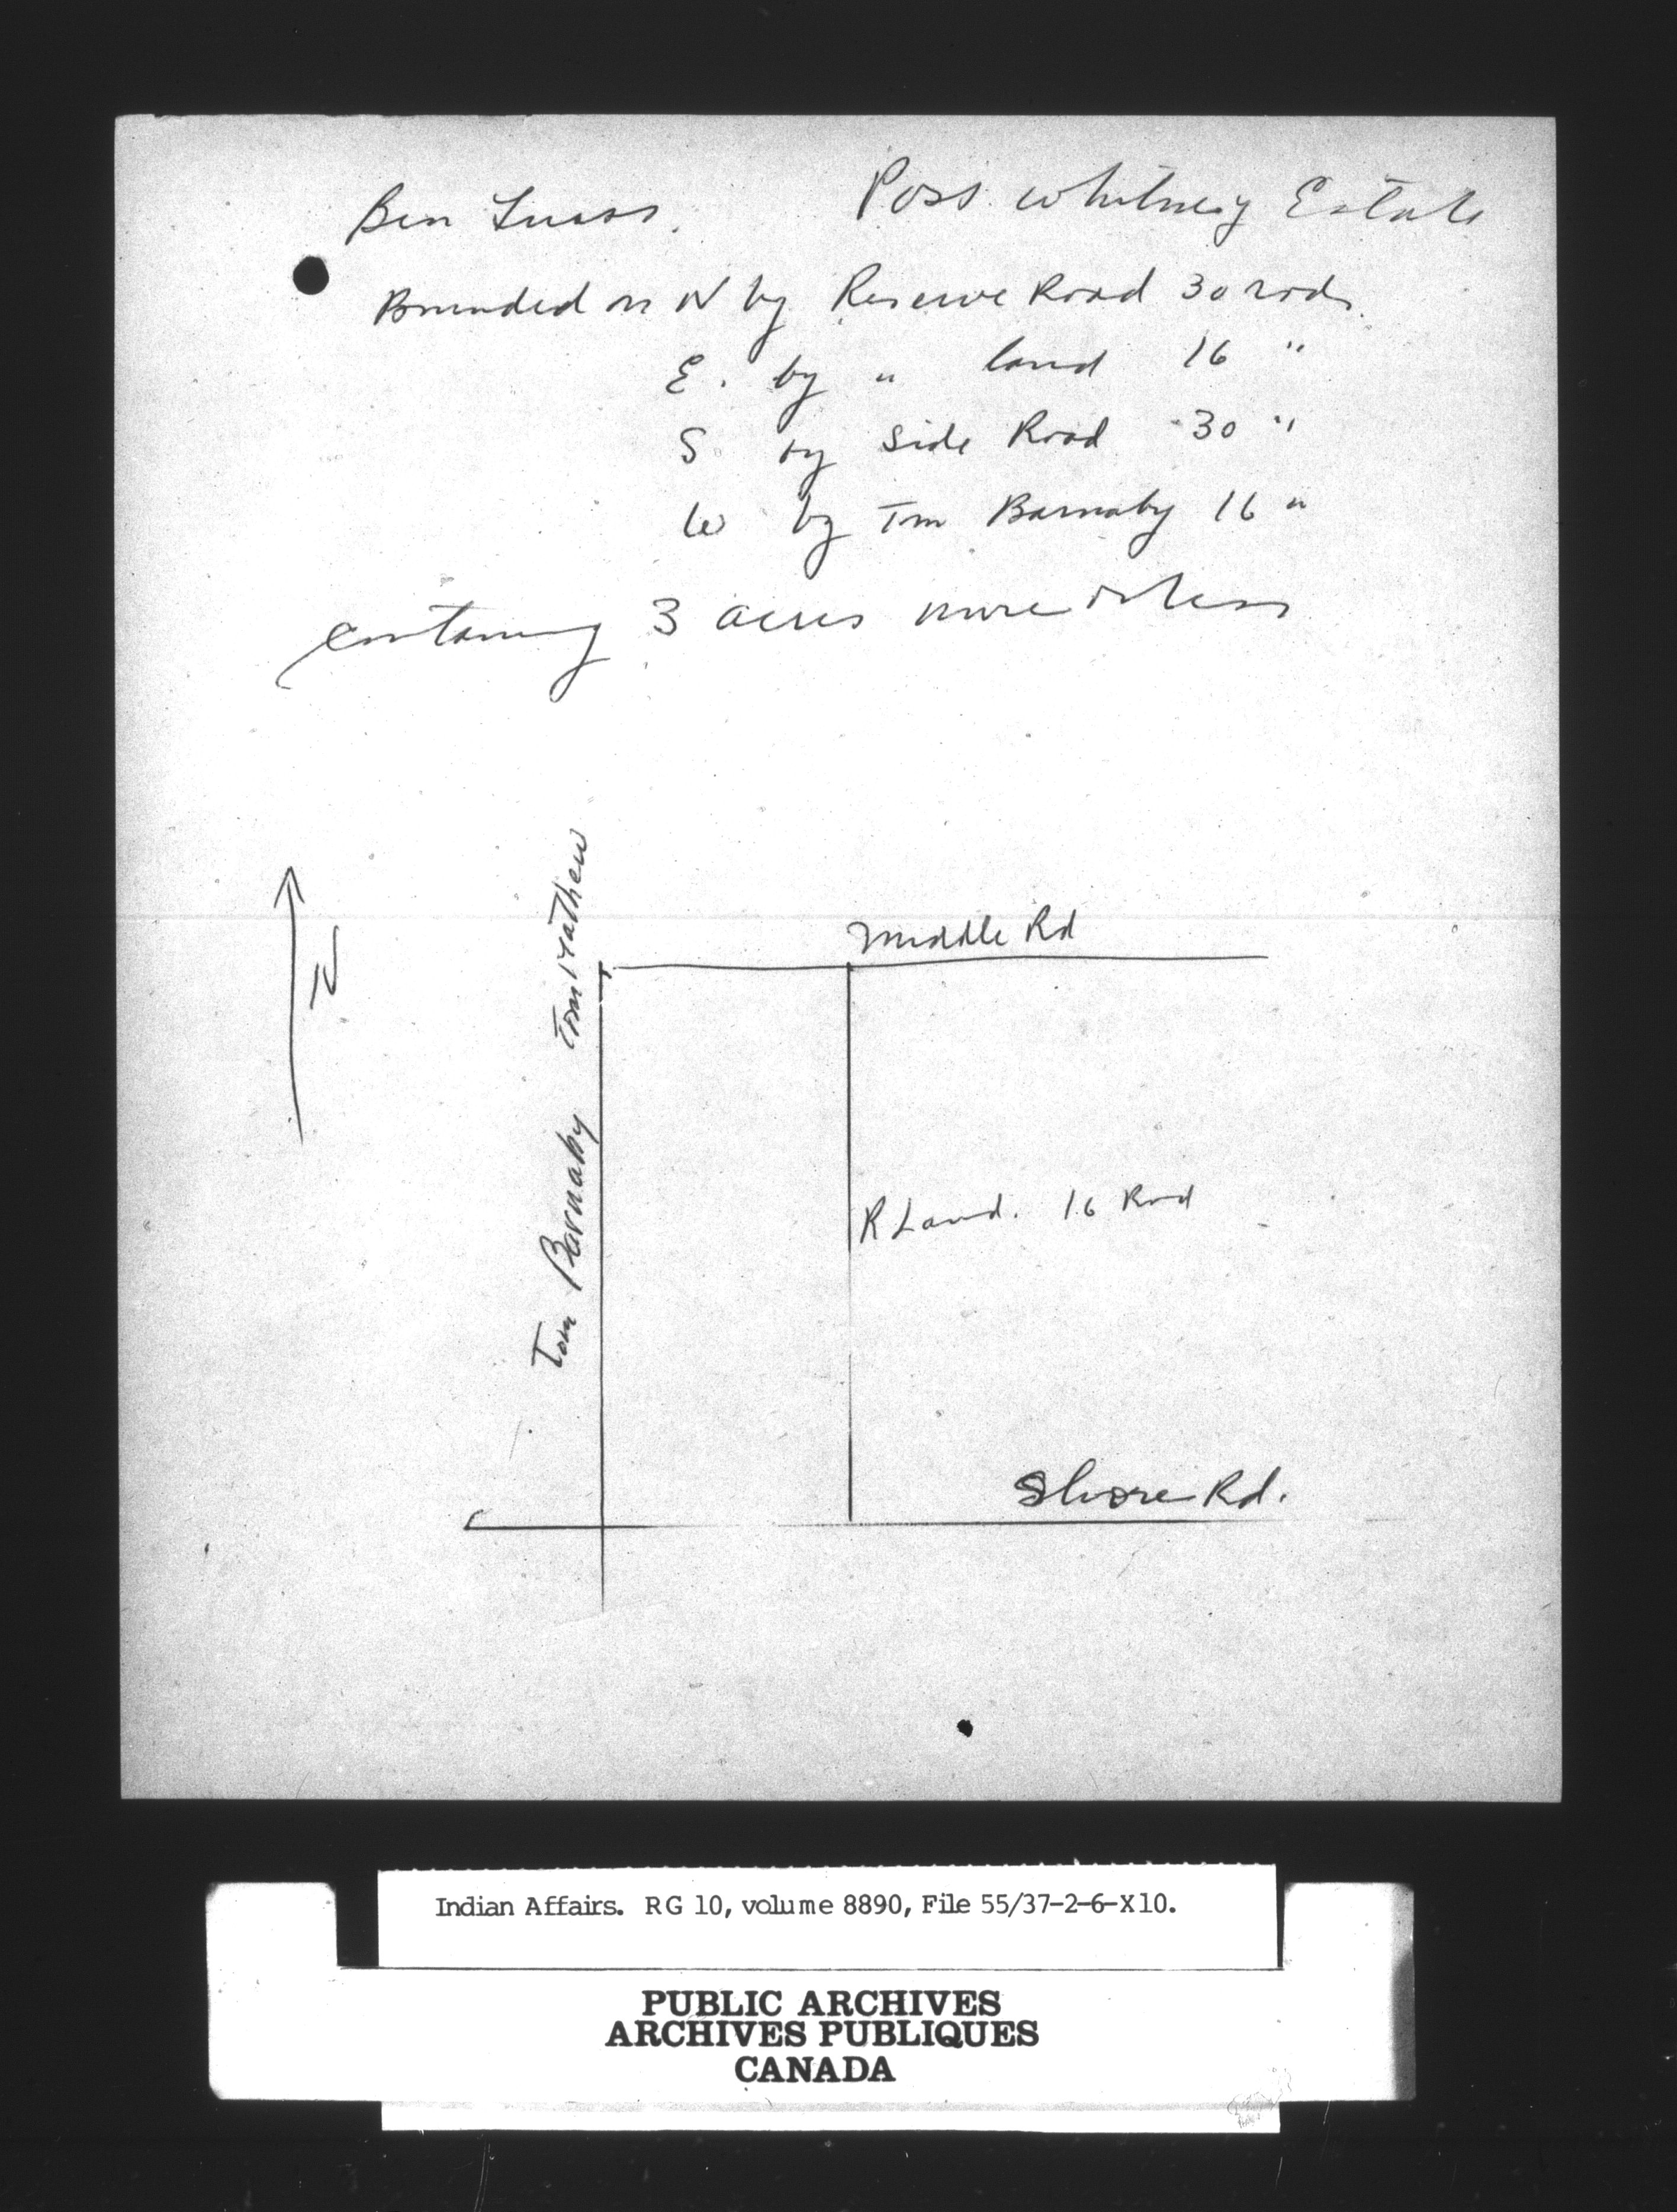 Ben Lucas. Poss Whitney Estate
Bounded on N by Reserve Road 30 rods.
E. by " land 16 "
S by Side Road 30 "
W by Tom Barnaby 16 "
containing 3 acres more or less
N
Tom Mathew
Tom Barnaby
Middle Rd
R Land. 16 Rod
Shore Rd.
Indian Affairs. RG 10, volume 8890, File 55/37-2-6-X10.
PUBLIC ARCHIVES
ARCHIVES PUBLIQUES
CANADA